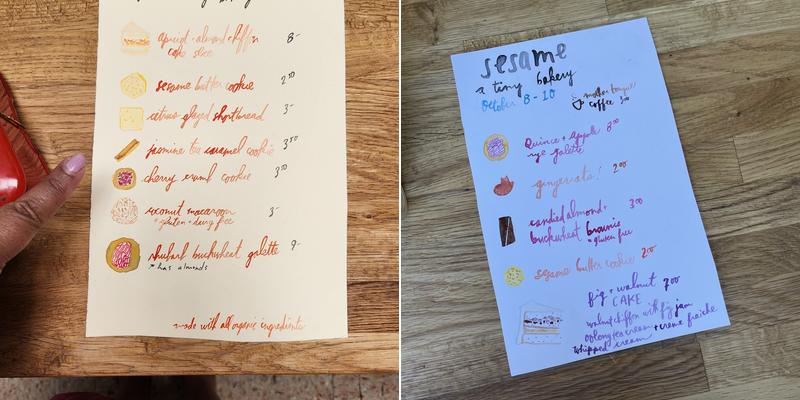 apricot almond chiffon 8-
cake slice
sesame butter cookie 2 50
citrus glazed shortbread 3-
jasmine tea caramel cookie 3 50
cherry crumb cookie 3 50
coconut macaroon 3-
* gluten + dairy free
rhubarb buckwheat galette 9-
* has almonds
made with all organic ingredients
sesame
a tiny bakery
October 8-10
mother tongue
coffee 3 00
Quince + Apple 8 00
rye galette
ginger cats! 2 00
candied almond + 3 00
buckwheat brownie
* gluten free
sesame butter cookie 2 00
fig + walnut 7 00
CAKE
walnut chiffon with fig jam
oolong tea cream + creme fraiche
whipped cream